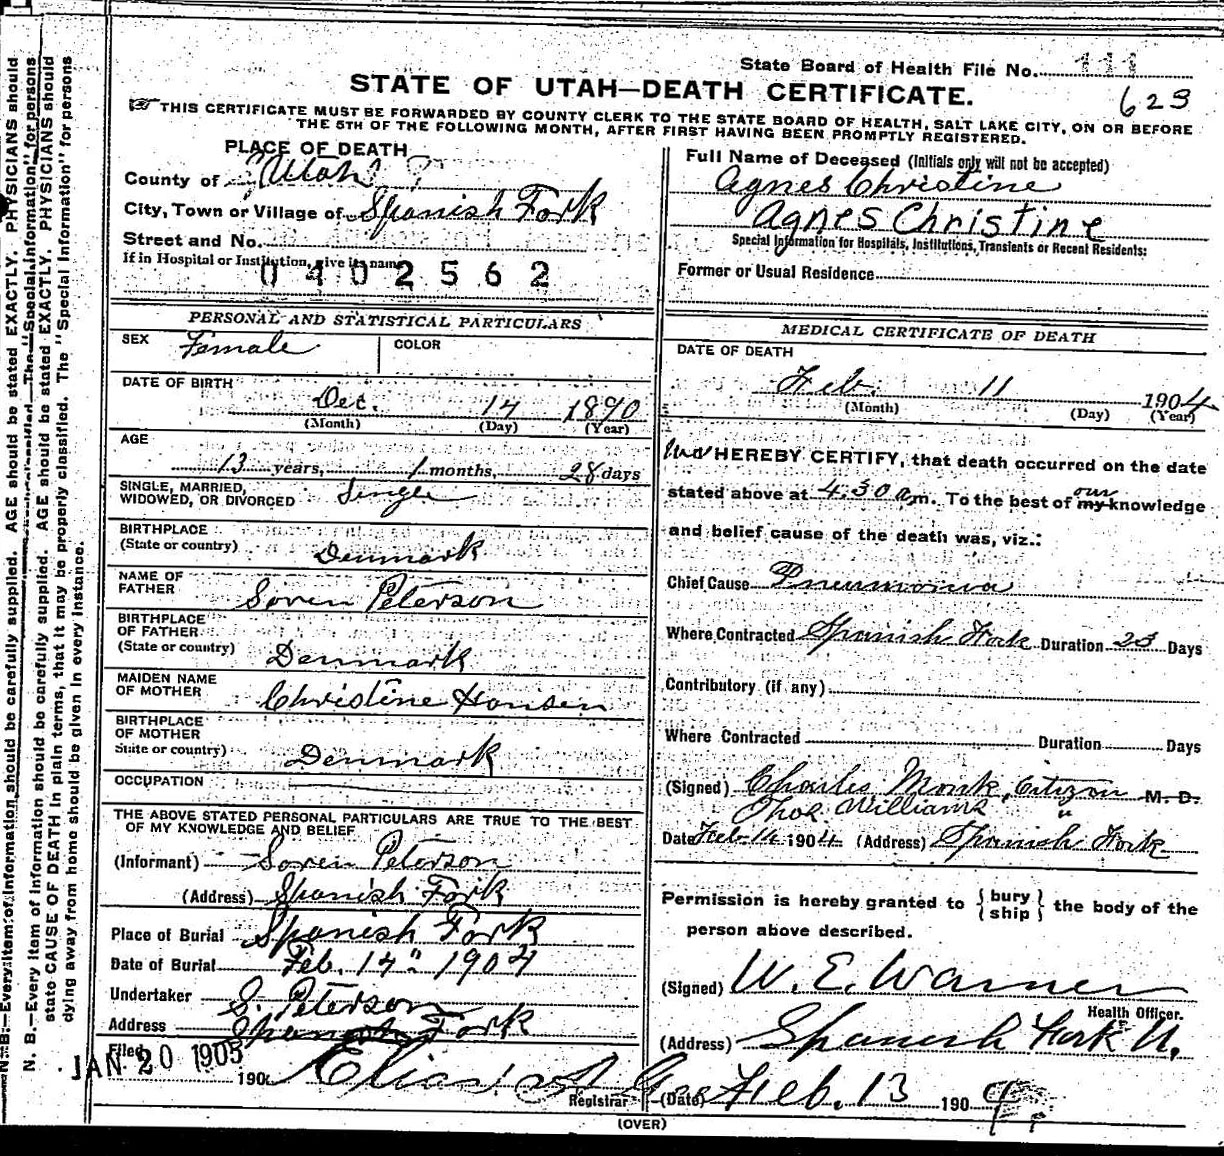 State Board of Health File No. 111
STATE OF UTAH—DEATH CERTIFICATE.
623
THIS CERTIFICATE MUST BE FORWARDED BY COUNTY CLERK TO THE STATE BOARD OF HEALTH, SALT LAKE CITY, ON OR BEFORE
THE 5TH OF THE FOLLOWING MONTH, AFTER FIRST HAVING BEEN PROMPTLY REGISTERED.
PLACE OF DEATH
County of Utah ?
City, Town or Village of Spanish Fork
Street and No.
If in Hospital or Institution, give its name
0402562
Full Name of Deceased (Initials only will not be accepted)
Agnes Christine
Agnes Christine
Special Information for Hospitals, Institutions, Transients or Recent Residents:
Former or Usual Residence
PERSONAL AND STATISTICAL PARTICULARS
SEX Female COLOR
DATE OF BIRTH
Dec. 14 1890
(Month) (Day) (Year)
AGE
13 years, 1 months, 28 days
SINGLE, MARRIED,
WIDOWED, OR DIVORCED Single
BIRTHPLACE
(State or country) Denmark
NAME OF
FATHER Soren Peterson
BIRTHPLACE
OF FATHER
(State or country) Denmark
MAIDEN NAME
OF MOTHER Christine Hansen
BIRTHPLACE
OF MOTHER
State or country) Denmark
OCCUPATION
THE ABOVE STATED PERSONAL PARTICULARS ARE TRUE TO THE BEST
OF MY KNOWLEDGE AND BELIEF
(Informant) Soren Peterson
(Address) Spanish Fork
Place of Burial Spanish Fork
Date of Burial Feb. 14" 1904
Undertaker S. Peterson
Address Spanish Fork
Filed
JAN 20 1905
190
Registrar
MEDICAL CERTIFICATE OF DEATH
DATE OF DEATH
Feb. 11 1904
(Month) (Day) (Year)
HEREBY CERTIFY, that death occurred on the date
stated above at 4.30 a m. To the best of my our knowledge
and belief cause of the death was, viz.:
Chief Cause Pneumonia
Where Contracted Spanish Fork Duration 23 Days
Contributory (if any)
Where Contracted Duration Days
(Signed) Charles Monk, Citizen M. D.
Thos Williams "
Date Feb 14 1904 (Address) Spanish Fork
Permission is hereby granted to { bury ship } the body of the
person above described.
(Signed) W. E. Warner
Health Officer.
(Address) Spanish Fork U.
(Date) Feb. 13 190 4
(OVER)
N. B.—Every item of information should be carefully supplied. AGE should be stated EXACTLY. PHYSICIANS should
N. B.—Every item of information should be carefully supplied. AGE should be stated EXACTLY. PHYSICIANS should
state CAUSE OF DEATH in plain terms, that it may be properly classified. The "Special Information" for persons
dying away from home should be given in every instance.